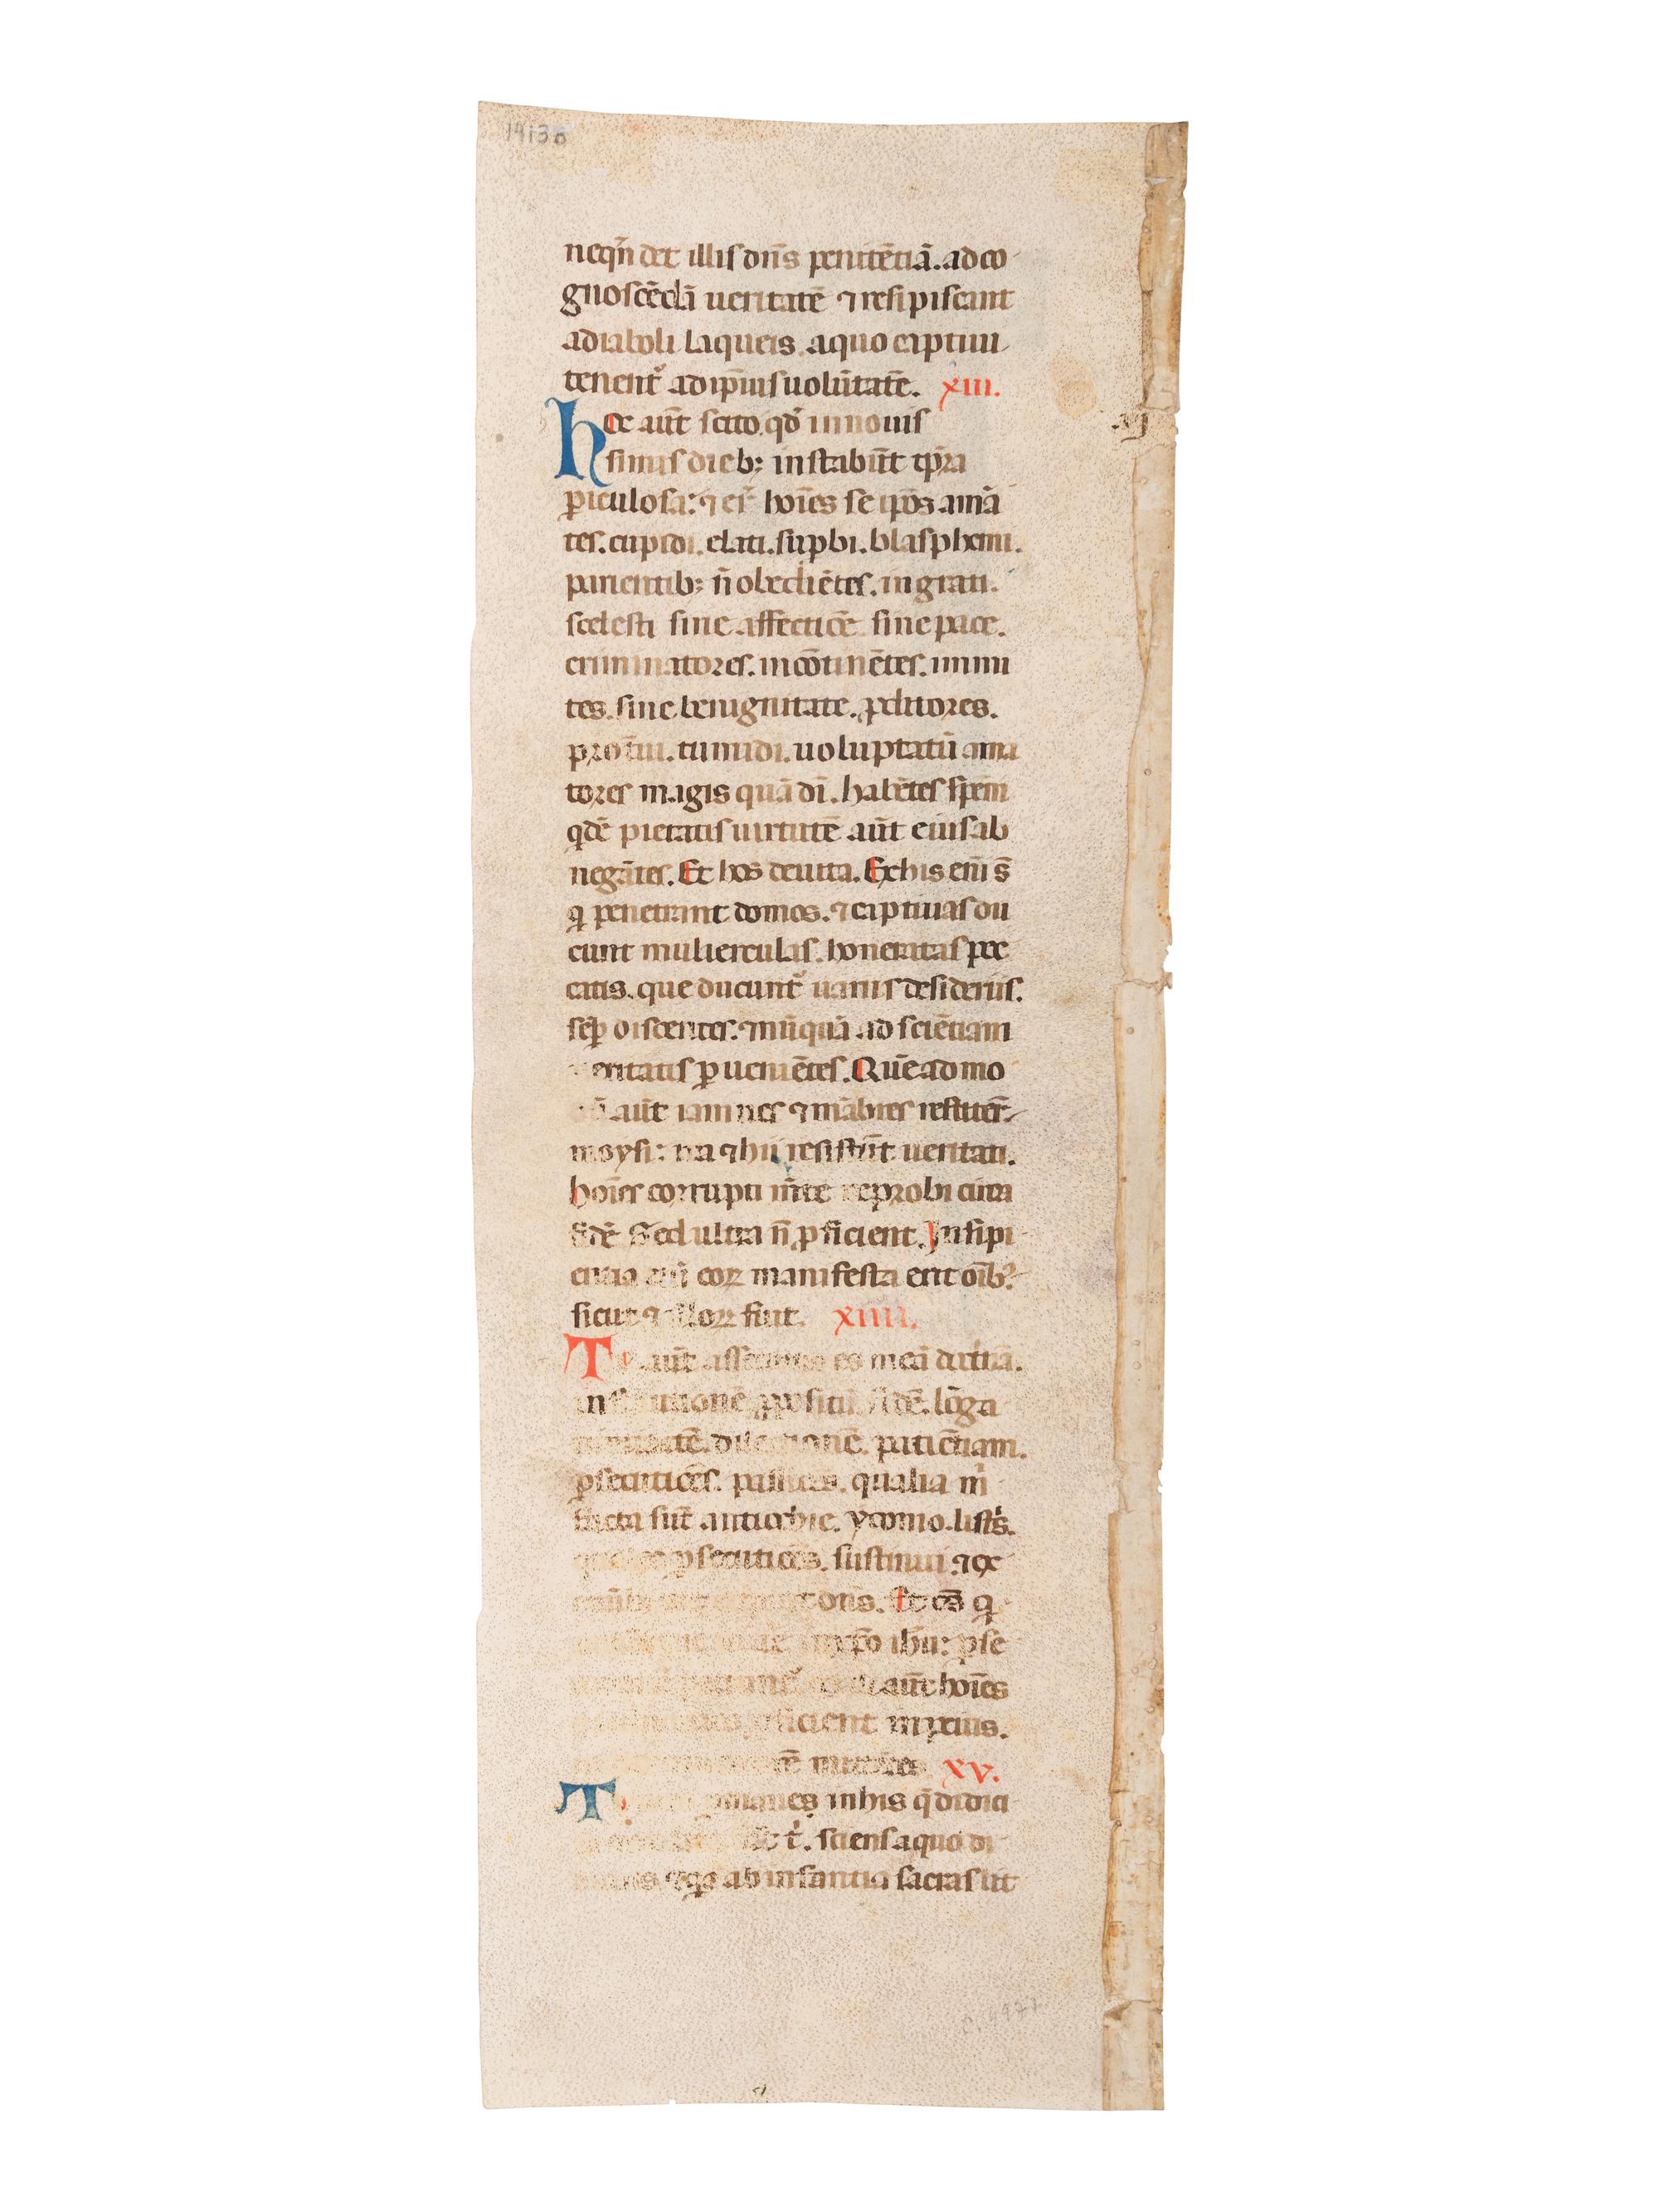 1413
neqñ det illis dñs penitētiā. ad co
gnoscēdā ueritatē ⁊ resipiscant
a diaboli laqueis. a quo captiui
tenent᷑ ad ip̄ius uolūtatē. XIII.
hoc aūt scito. qđ in nouis
simis dieb; instabūt tp̄ra
ꝑiculosa: ⁊ er̄t hoīes se ip̄os amā
tes. cupidi. elati. supbi. blasphemi.
parientib; ñ obediētes. ingrati.
scelesti sine affectiōe sine pace.
criminatores. incōtinētes. inmi
tes. sine benignitate. ꝓditores.
proťui. tumidi. uoluptatū ama
tores magis quā dī. habētes spēm
qdē pietatis uirtutē aūt eius ab
negātes. Et hos deuita. Ex his enī s̄
q penetrant domos. ⁊ captiuas du
cunt mulierculas. honeratas pec
catis. que ducunt᷑ uariis desideriis.
sēꝑ discentes. ⁊ nūquā ad sciētiam
ueritatis ꝑueniētes. Quē ad mo
dū aūt iamnes ⁊ mābres restiter̄t
moysi: ita ⁊ hii resistūt ueritati.
hoīes corrupti m̄te reprobi circa
fidē Sed ultra ñ ꝓficient. Insipi
entia enī eoꝝ manifesta erit oībꝰ
sicut ⁊ illoꝝ fuit. XIIII.
Tu aūt assecutus es meā doct̾nā.
institutionē ꝓpositū fidē. lōga
nimitatē. dilectionē. patiētiam.
ꝑsecutiōes. passiōes. qualia m̾
facta sūt antiochie. yconio. listr̾s.
quales ꝑsecutiōes. sustinui. ⁊ ex
dñs. Et oēs q
xp̄o ihū: pie
aūt hoīes
ꝓficient in peius.
mittētes XV.
Tu permanes in his q̄ didici
st̄ t̾. sciens a quo di
⁊ qꝛ ab infantia sacras lit